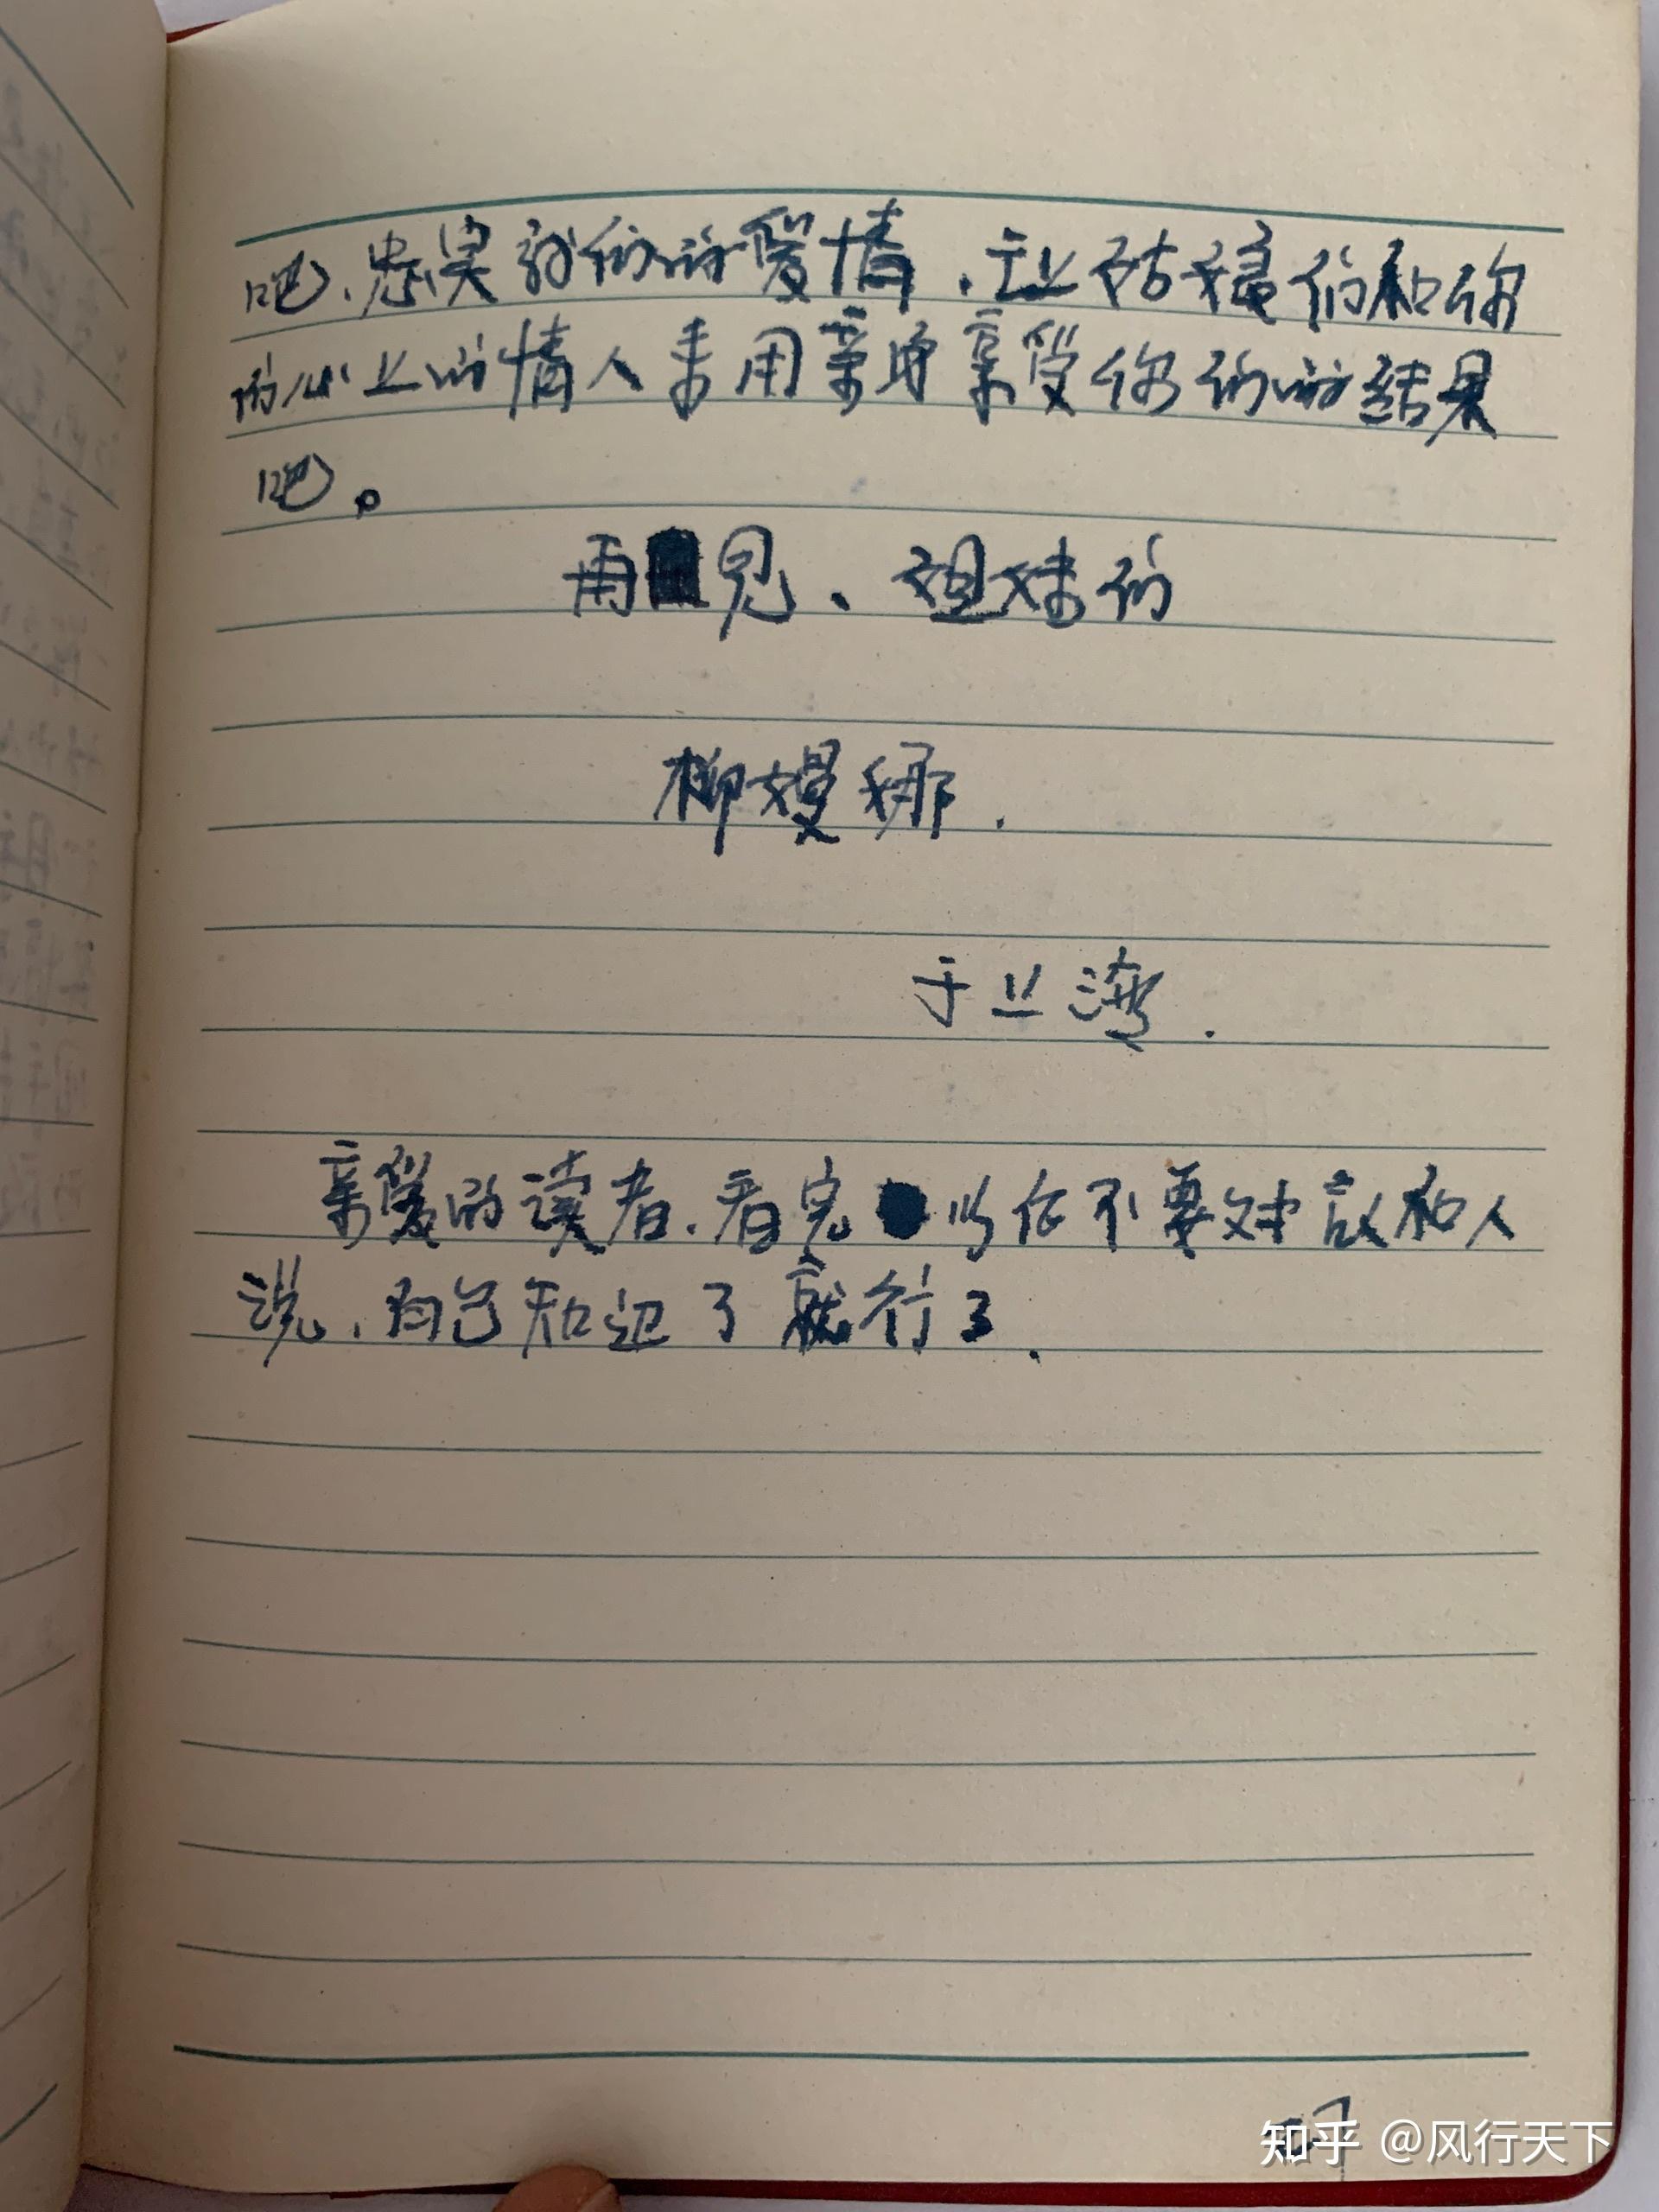 吧、忠实我们的爱情．让姑娘们和你
的心上的情人来用亲身享受你们的结果
吧。
再见、姐妹们
柳嫚娜．
于业湾．
亲爱的读者．看完 以后不要对敌和人
说．自己知道了就行了．
知乎 @风行天下